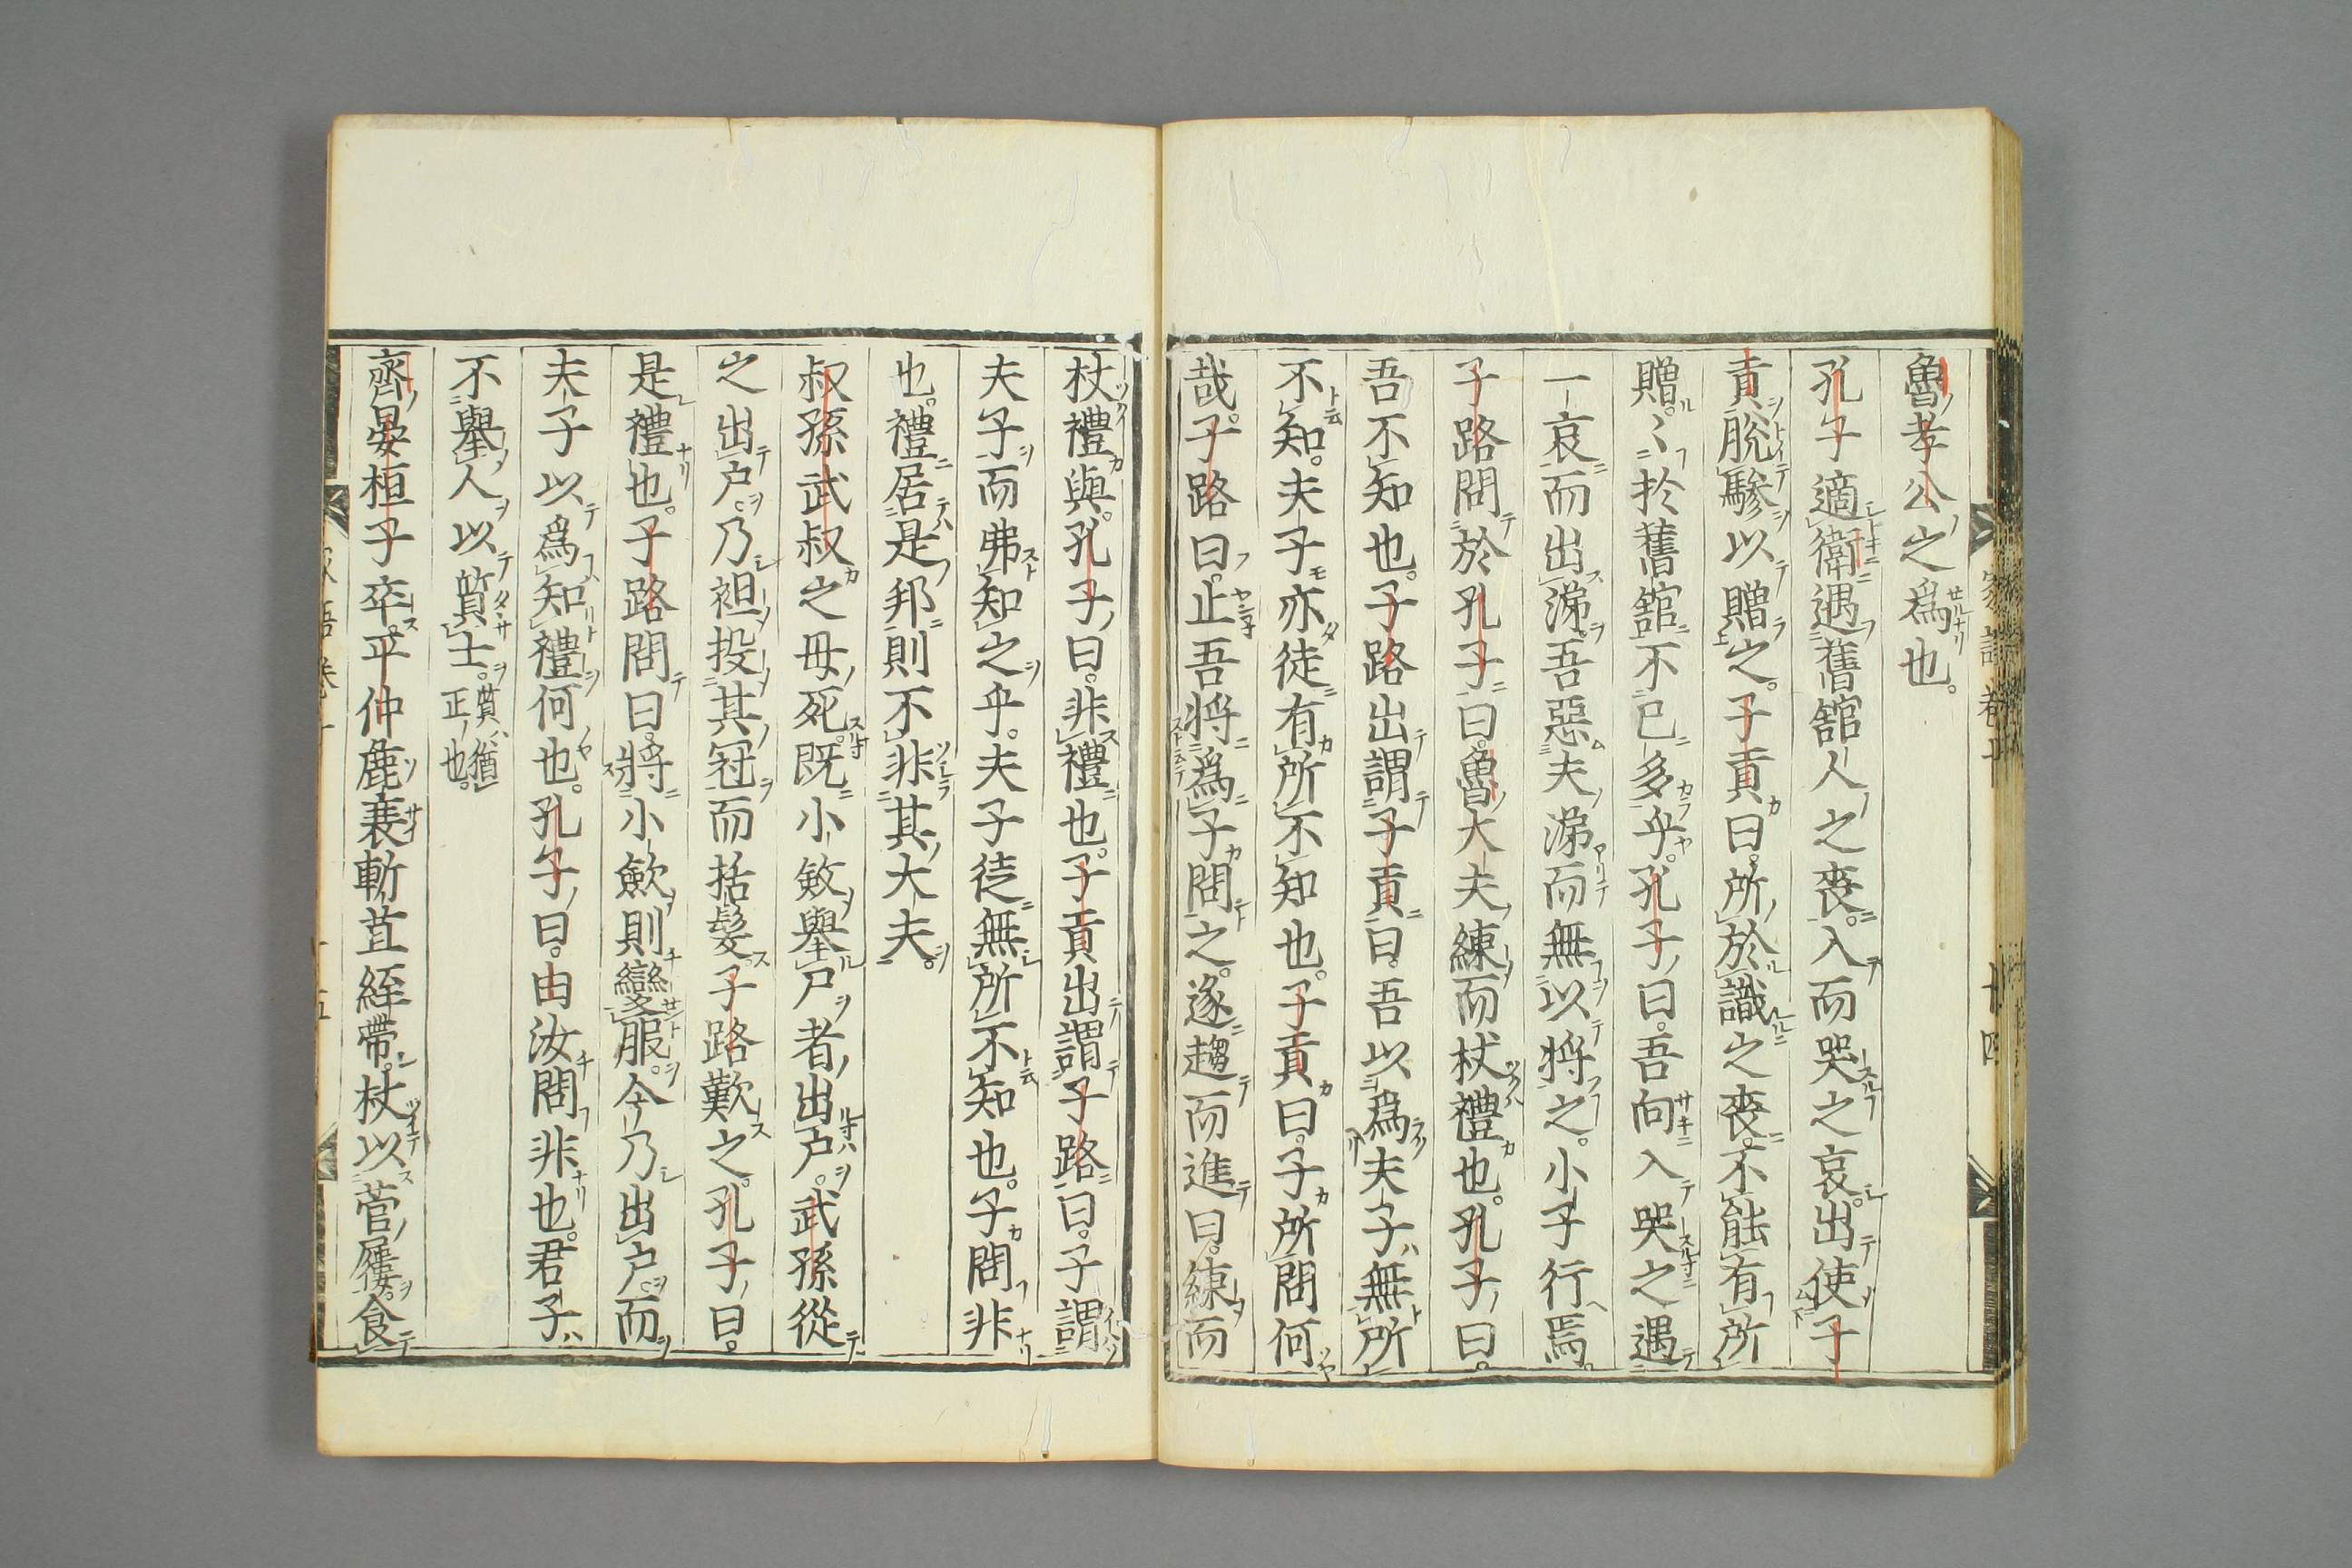 魯孝公之爲也。
孔子適衛遇舊舘人之喪。入而哭之哀。出使子
貢脫驂以贈之。子貢曰。所於識之喪。不能有所
贈。〻於舊舘不已多乎。孔子曰。吾向入哭之遇
一哀而出涕。吾惡夫涕而無以將之。小子行焉。
子路問於孔子曰。魯大夫練而杖禮也。孔子曰。
吾不知也。子路出謂子貢曰。吾以爲夫子無所
不知。夫子亦徒有所不知也。子貢曰。子所問何
哉。子路曰。止吾將爲子問之。遂趨而進曰。練而
杖禮與。孔子曰。非禮也。子貢出謂子路曰。子謂
夫子而弗知之乎。夫子徒無所不知也。子問非
也。禮居是邦則不非其大夫。
叔孫武叔之母死。既小斂舉尸者出戶。武孫從
之出戶。乃袒投其冠而括髮。子路歎之。孔子曰。
是禮也。子路問曰。將小斂則變服。今乃出戶。而
夫子以爲知禮何也。孔子曰。由汝問非也。君子
不舉人以質士。質猶正也。
齊晏桓子卒。平仲麁衰斬苴絰帶。杖以菅屨。食